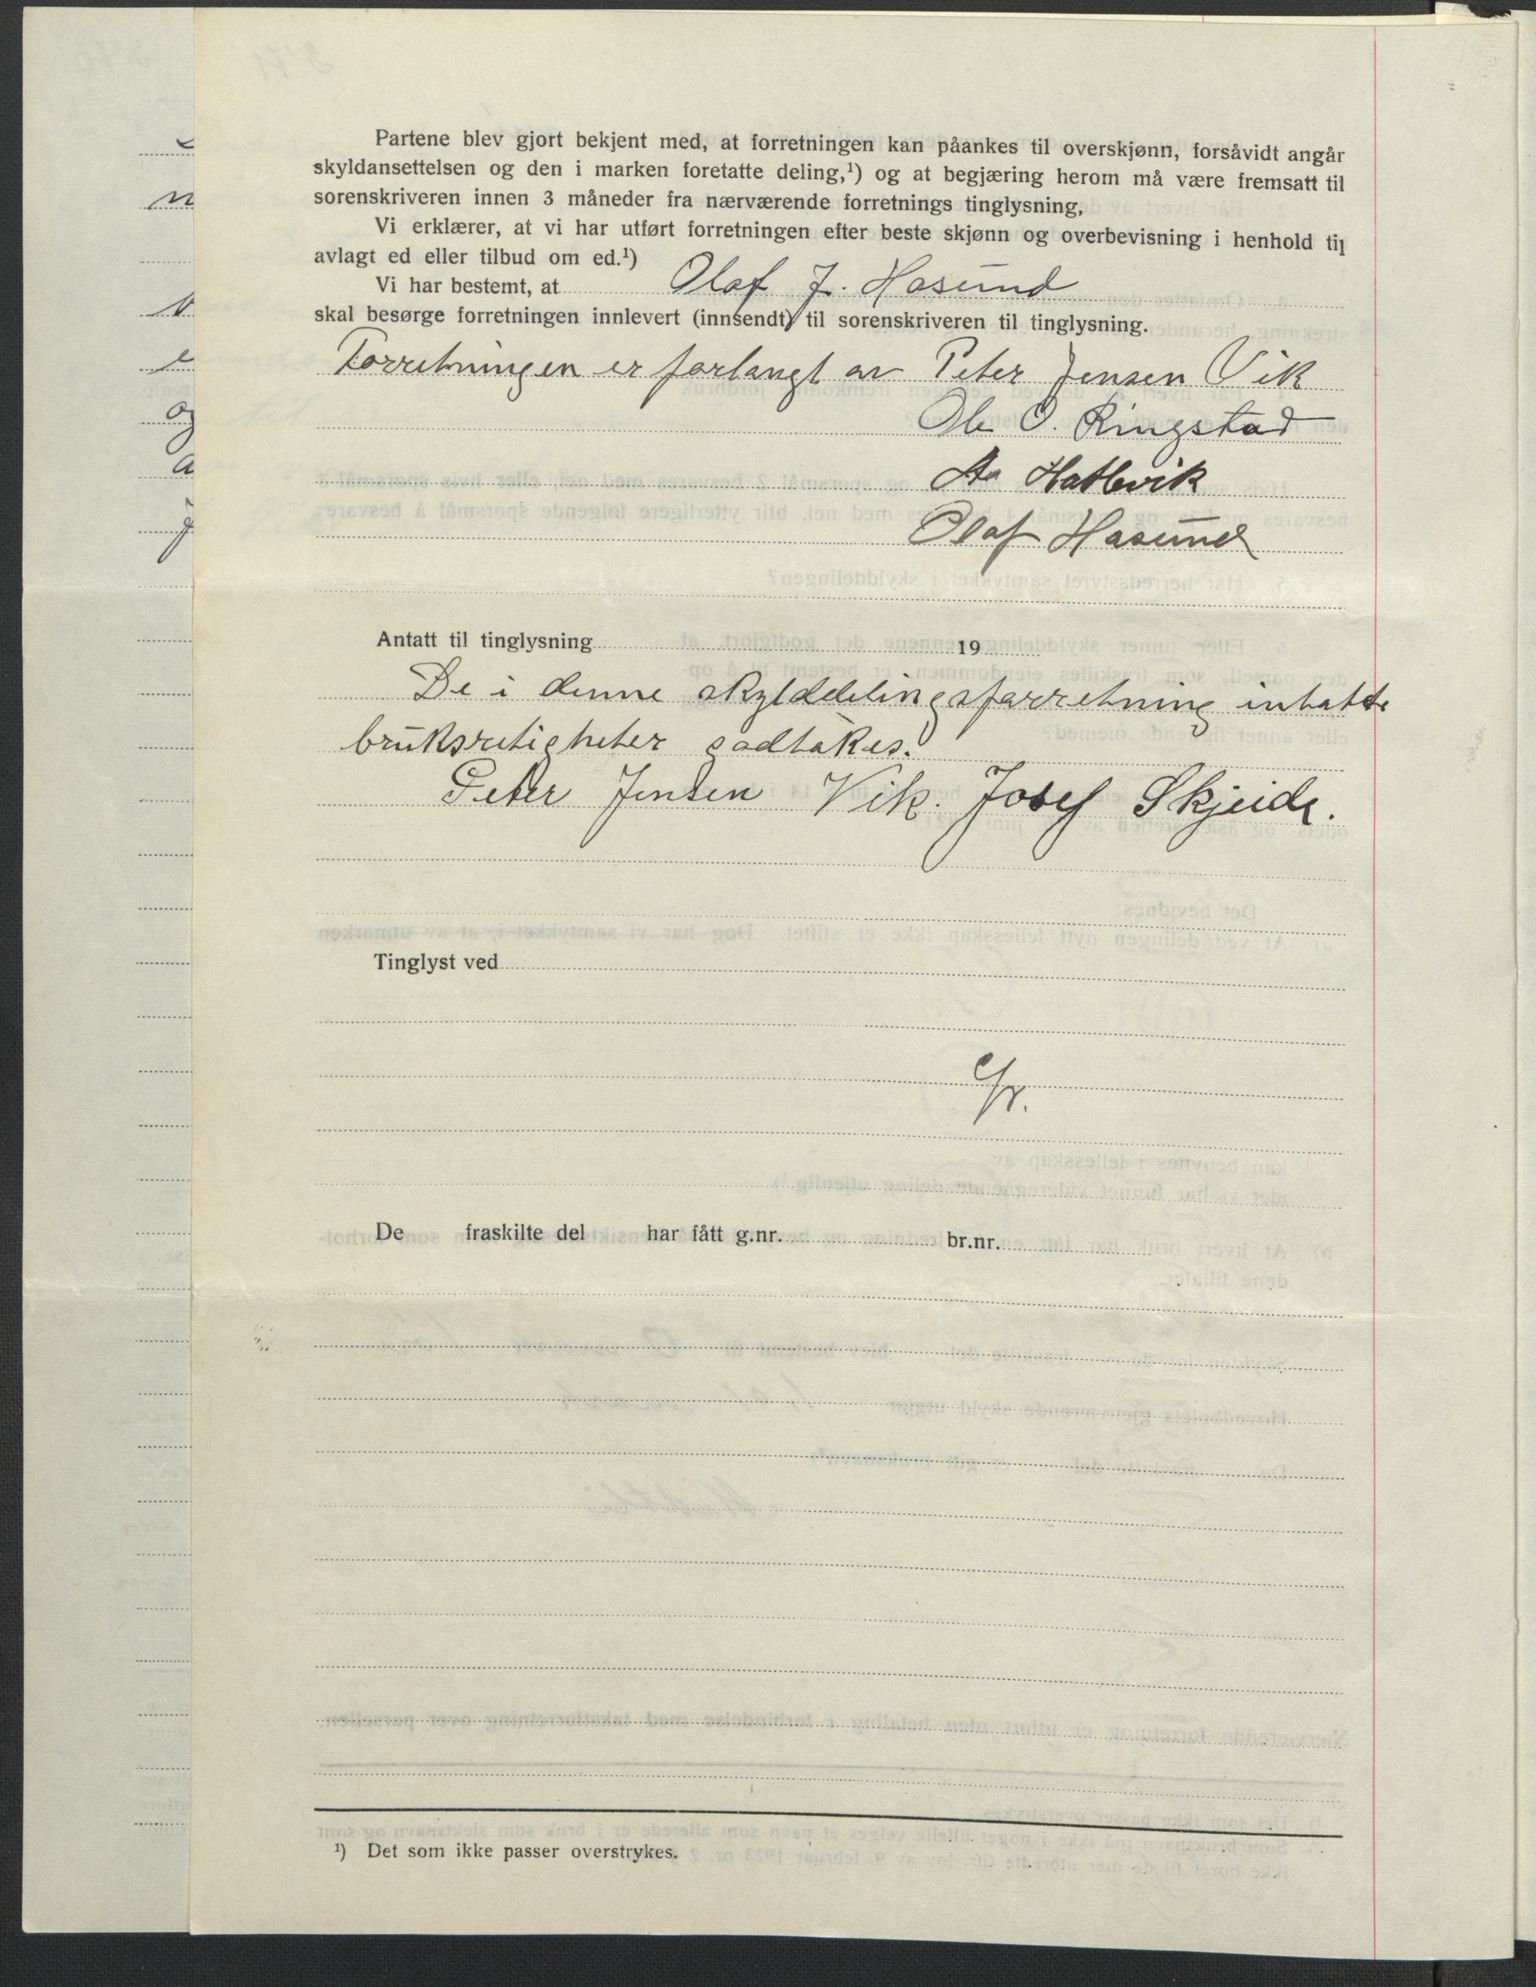 Partene blev gjort bekjent med, at forretningen kan påankes til overskjønn, forsåvidt angår
skyldansettelsen og den i marken foretatte deling,¹) og at begjæring herom må være fremsatt til
sorenskriveren innen 3 måneder fra nærværende forretnings tinglysning,
Vi erklærer, at vi har utført forretningen efter beste skjønn og overbevisning i henhold til
avlagt ed eller tilbud om ed.¹)
Vi har bestemt, at Olaf J. Hasund
skal besørge forretningen innlevert (innsendt) til sorenskriveren til tinglysning.
Forretningen er forlangt av Peter Jensen Vik
Ole O. Ringstad
Hatlevik
Olaf Hasund
Antatt til tinglysning 19
De i denne skylddelingsforretning intatte
bruksretigheter godtakes.
Peter Jensen Vik. Josef Skjeide.
Tinglyst ved
De fraskilte del har fått g.nr. br.nr.
¹) Det som ikke passer overstrykes.